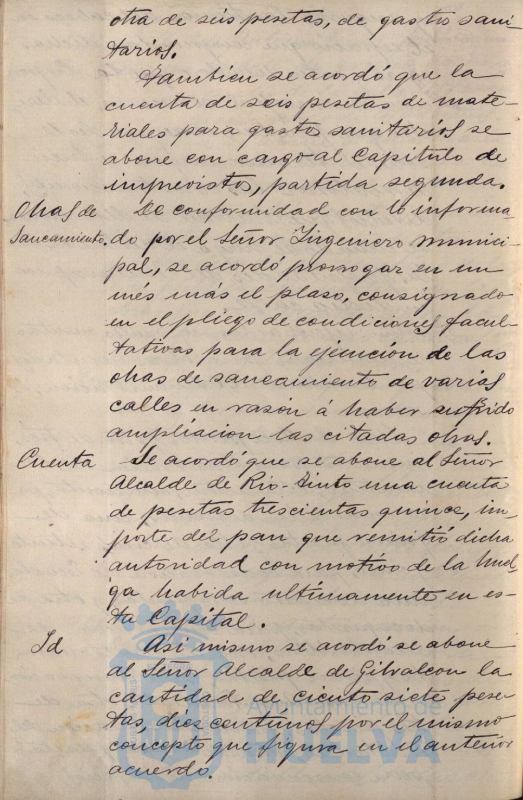 otra de seis pesetas, de gastos sani-
tarios.
Tambien se acordó que la
cuenta de seis pesetas de mate-
riales para gastos sanitarios se
abone con cargo al Capitulo de
imprevistos, partida segunda.
Obras de
Saneamiento.
De conformidad con lo informa-
do por el Señor Ingeniero munici-
pal, se acordó prorrogar en un
més más el plaso, consignado
en el pliego de condiciones facul-
tativas para la ejecución de las
obras de saneamiento de varias
calles en rasón á haber sufrido
ampliacion las citadas obras.
Cuenta
Se acordó que se abone al Señor
Alcalde de Rio-Tinto una cuenta
de pesetas trescientas quince, im-
porte del pan que remitió dicha
autoridad con motivo de la huel-
ga habida ultimamente en es-
ta Capital.
Id
Asi mismo se acordó se abone
al Señor Alcalde de Gibraleon la
cantidad de ciento siete pese-
tas, dies centimos por el mismo
concepto que figura en el anterior
acuerdo.
Ayuntamiento de
HUELVA